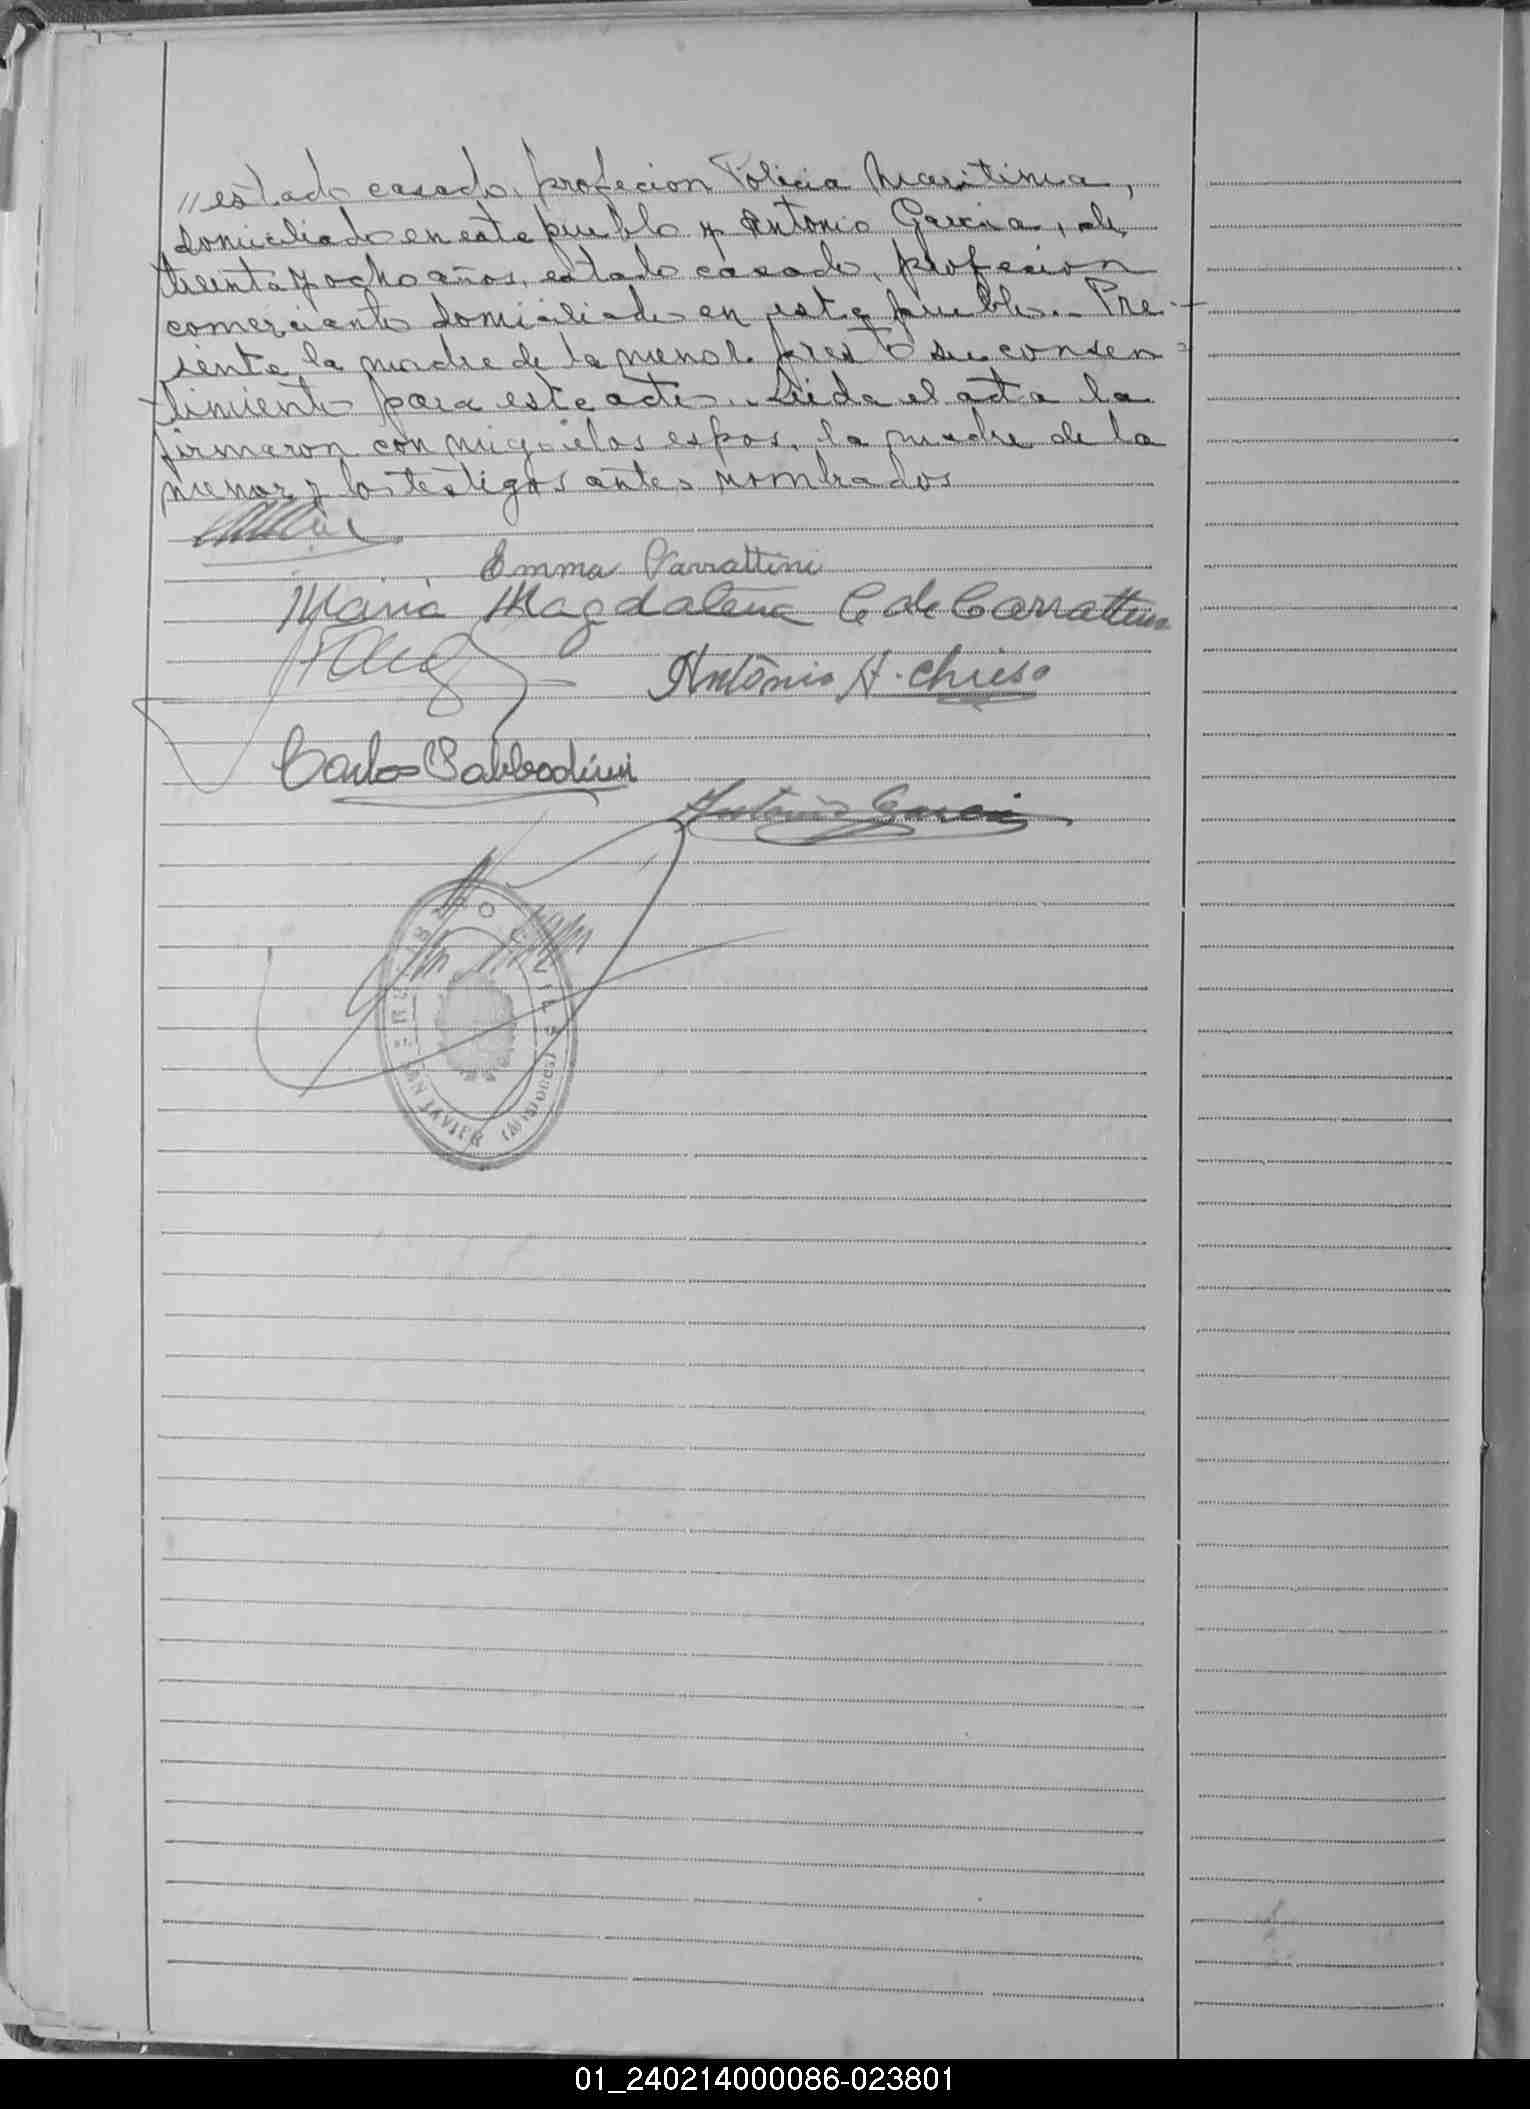 "estado casado, profecion Policia Maritima,
domiciliado en este pueblo y Antonio Garcia, de
treinta y ocho años, estado casado, profecion
comerciante domiciliado en este pueblo.. Pre-
sente la madre de la menor presto su consen=
timiento para este acto.. Leida el acta la
firmaron conmigo los espos, la madre de la
menor y los testigos antes nombrados
Emma Parrattini
Maria Magdalena C de Carrattini
Antonio H. Chieso
Carlos Sabbadini
Antonio Garcia
REGISTRO CIVIL
SAN JAVIER (MISIONES)
01_240214000086-023801